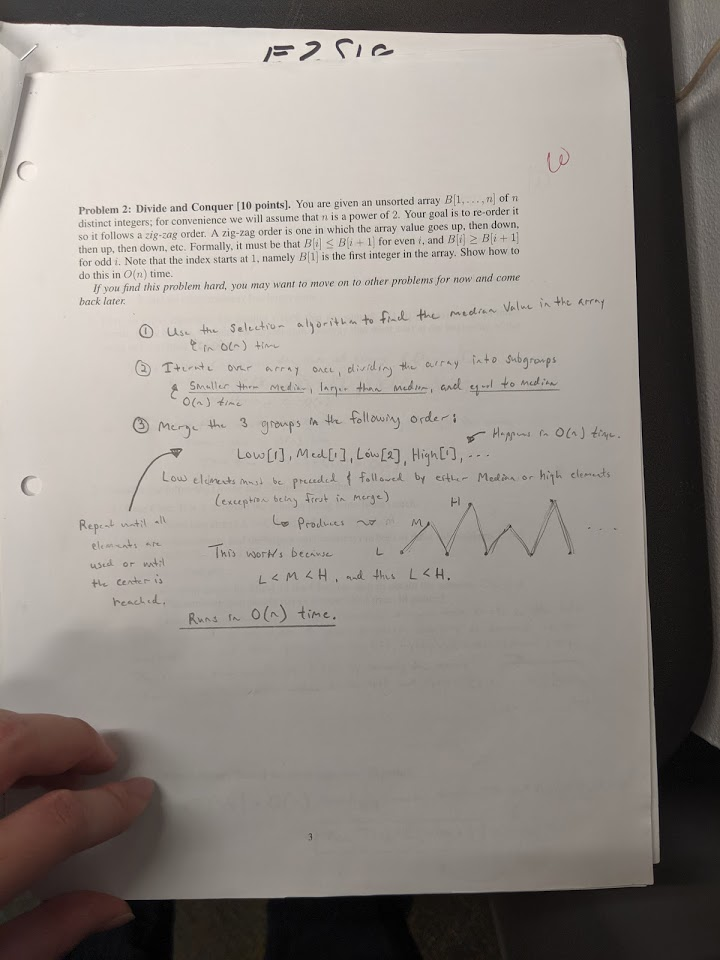 Problem 2: Divide and Conquer [10 points]. You are given an unsorted array B[1, . . . , n] of n
distinct integers; for convenience we will assume that n is a power of 2. Your goal is to re-order it
so it follows a zig-zag order. A zig-zag order is one in which the array value goes up, then down,
then up, then down, etc. Formally, it must be that B[i] ≤ B[i + 1] for even i, and B[i] ≥ B[i + 1]
for odd i. Note that the index starts at 1, namely B[1] is the first integer in the array. Show how to
do this in O(n) time.
If you find this problem hard, you may want to move on to other problems for now and come
back later.
① Use the Selection algorithm to find the median value in the array
in O(n) time
② Iterate over array once, dividing the array into subgroups
Smaller than Median, larger than medium, and equal to median
O(n) time
③ Merge the 3 groups in the following order:
Happens in O(n) time.
Low[1], Med[1], Low[2], High[1], ...
Low elements must be preceded & followed by either Median or high elements
(exception being first in merge)
Repeat until all
elements are
used or until
the center is
reached.
↳ Produces
H
M
L
...
This works because
L < M < H, and thus L < H.
Runs in O(n) time.
3